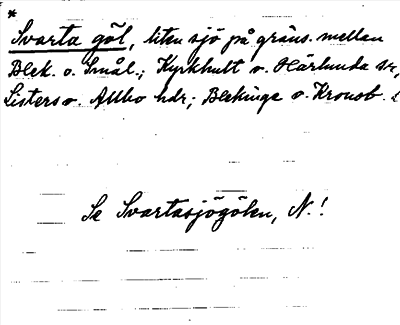 *
Svarta göl, liten sjö på gräns. mellan
Blek. o. Smål.; Kyrkhult o. Härlunda snr,
Listers o. Allbo hdr; Blekinge o. Kronob. l
Se Svartasjögölen, N.!